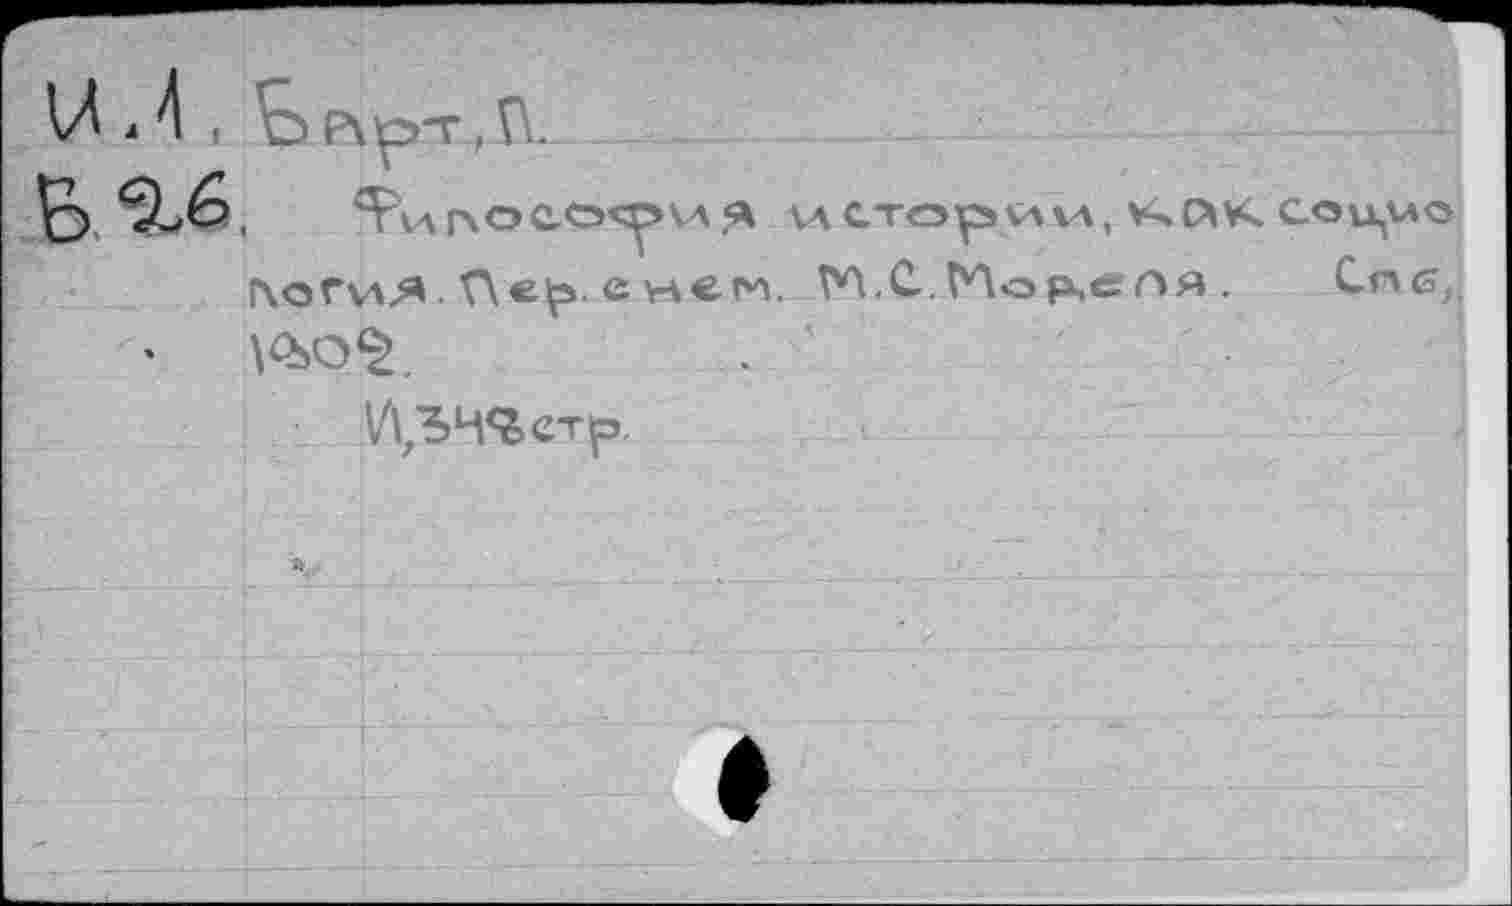 И.1, Барт, П.
Б.26. Философия истории, как социо
логия. Пер. с нем. М.С. Моделя. Спб,
1902.
II, 348 стр.